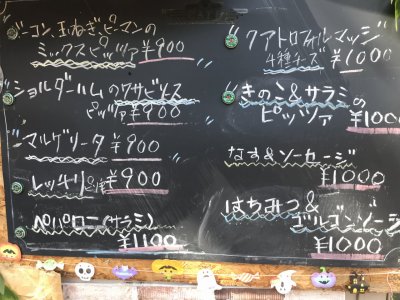 ベーコン、玉ねぎ、ピーマンの
ミックスピッツァ ¥900
ショルダーハムのワサビソース
ピッツァ ¥900
マルゲリータ ¥900
¥900
ペパロニ(サラミ)
¥1100
クアトロフォルマッジ
4種チーズ ¥1000
きのこ&サラミの
ピッツァ ¥1000
なす&ソーセージ
¥1000
はちみつ&
ゴルゴンゾーラ
¥1000